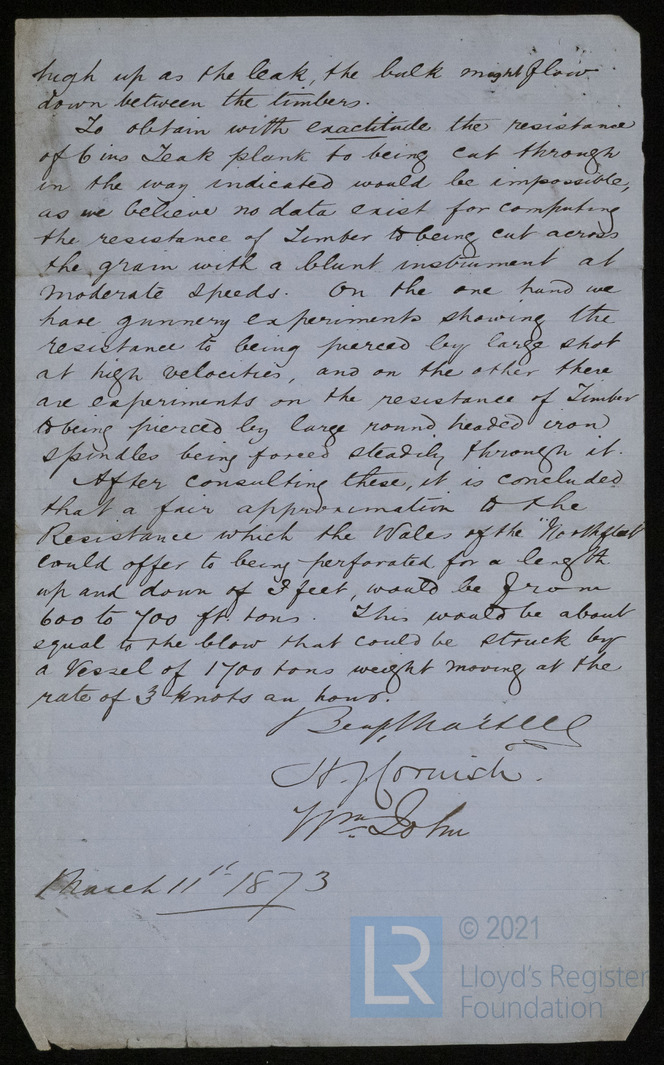 high up as the leak, the bulk might flow
down between the timbers.
To obtain with exactitude the resistance
of 6 ins Teak plank to being cut through
in the way indicated would be impossible,
as we believe no data exist for computing
the resistance of Timber to being cut across
the grain with a blunt instrument at
moderate speeds. On the one hand we
have gunnery experiments showing the
resistance to being pierced by large shot
at high velocities, and on the other there
are experiments on the resistance of Timber
to being pierced by large round headed iron
spindles being forced steadily through it.
After consulting these, it is concluded
that a fair approximation to the
Resistance which the Wales of the "Northfleet"
could offer to being perforated for a length
up and down of 3 feet, would be from
600 to 700 ft. tons. This would be about
equal to the blow that could be struck by
a Vessel of 1700 tons weight moving at the
rate of 3 knots an hour.
Benj. Martell
H. J. Cornish.
Wm. John
March 11th 1873
LR
© 2021
Lloyd's Register
Foundation